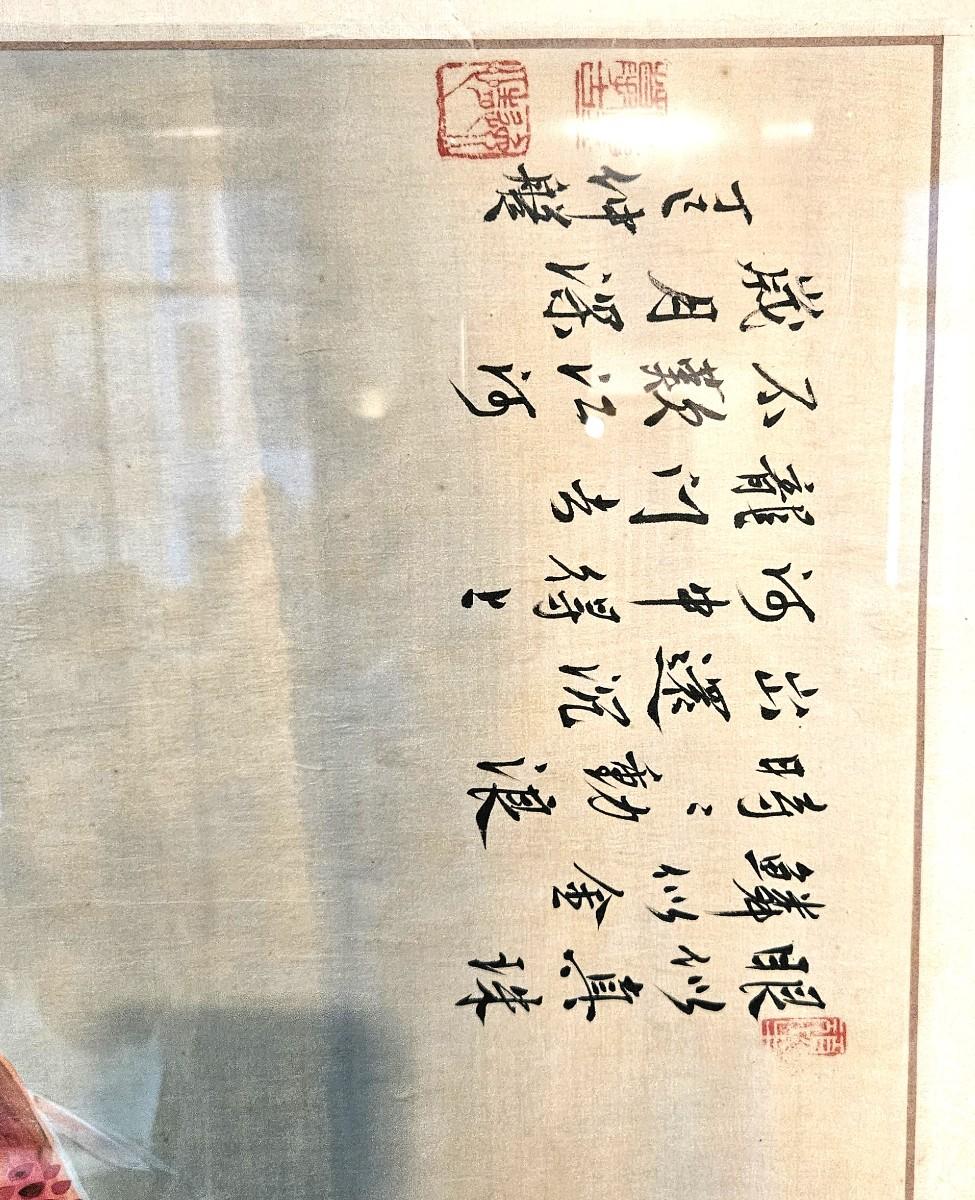 眼似真珠
鱗似金
時〻動浪
出還沉
河中得上
龍門去
不歎江河
歲月深
丁巳仲